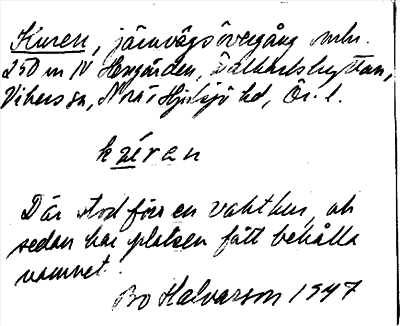 Kuren, järnvägsövergång omkr.
250 m NV Herrgården, Dalkarlshyttan,
Vikers sn, Nora o Hjulsjö hd, Ör. l.
kúren
Där stod förr en vaktkur, och
sedan har platsen fått behålla
namnet.
Bo Halvarson 1947